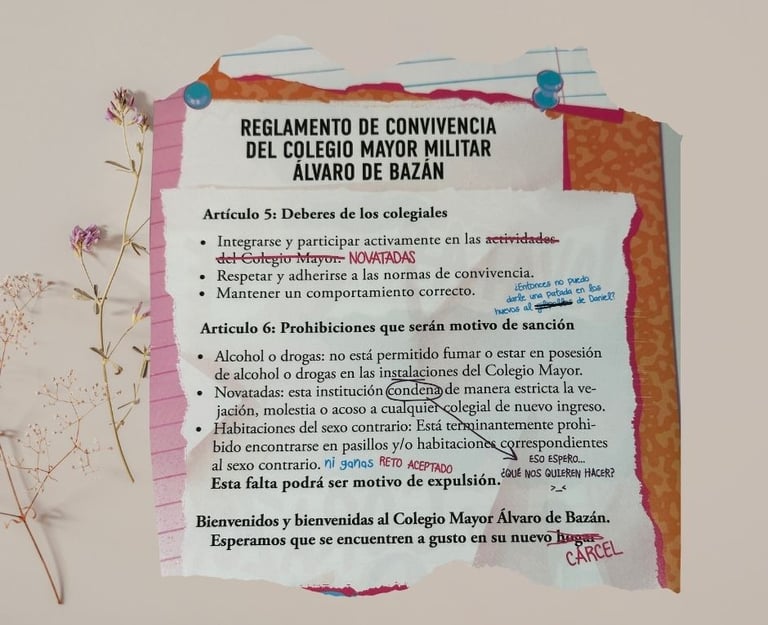 REGLAMENTO DE CONVIVENCIA
DEL COLEGIO MAYOR MILITAR
ÁLVARO DE BAZÁN
Artículo 5: Deberes de los colegiales
• Integrarse y participar activamente en las actividades
del Colegio Mayor. NOVATADAS
• Respetar y adherirse a las normas de convivencia.
• Mantener un comportamiento correcto.
¿Entonces no puedo
darle una patada en los
huevos al de Daniel?
Articulo 6: Prohibiciones que serán motivo de sanción
• Alcohol o drogas: no está permitido fumar o estar en posesión
de alcohol o drogas en las instalaciones del Colegio Mayor.
• Novatadas: esta institución condena de manera estricta la ve-
jación, molestia o acoso a cualquier colegial de nuevo ingreso.
• Habitaciones del sexo contrario: Está terminantemente prohi-
bido encontrarse en pasillos y/o habitaciones correspondientes
al sexo contrario. ni ganas RETO ACEPTADO
ESO ESPERO...
¿QUÉ NOS QUIEREN HACER?
>_<
Esta falta podrá ser motivo de expulsión.
Bienvenidos y bienvenidas al Colegio Mayor Álvaro de Bazán.
Esperamos que se encuentren a gusto en su nuevo hogar
CÁRCEL